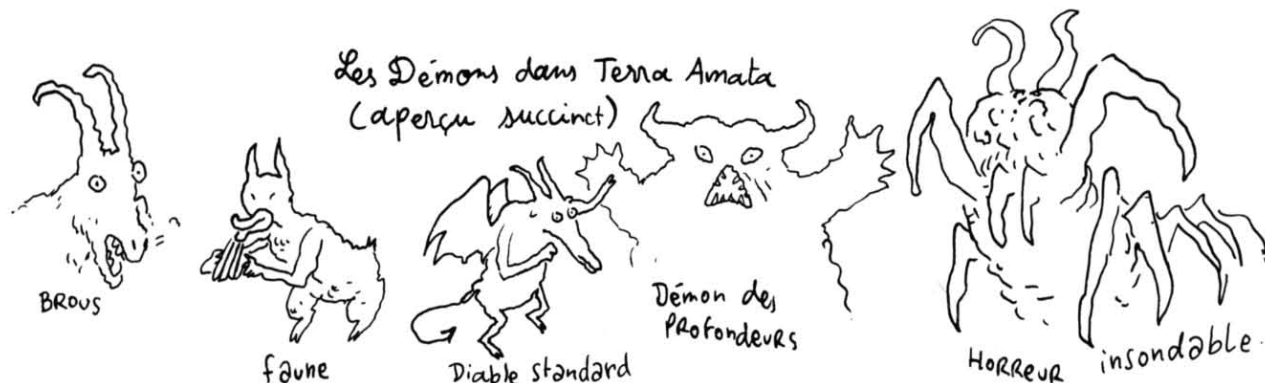 Les Démons dans Terra Amata
(aperçu succinct)
BROUS
faune
Diable standard
Démon des
PROFONDEURS
HORREUR insondable.